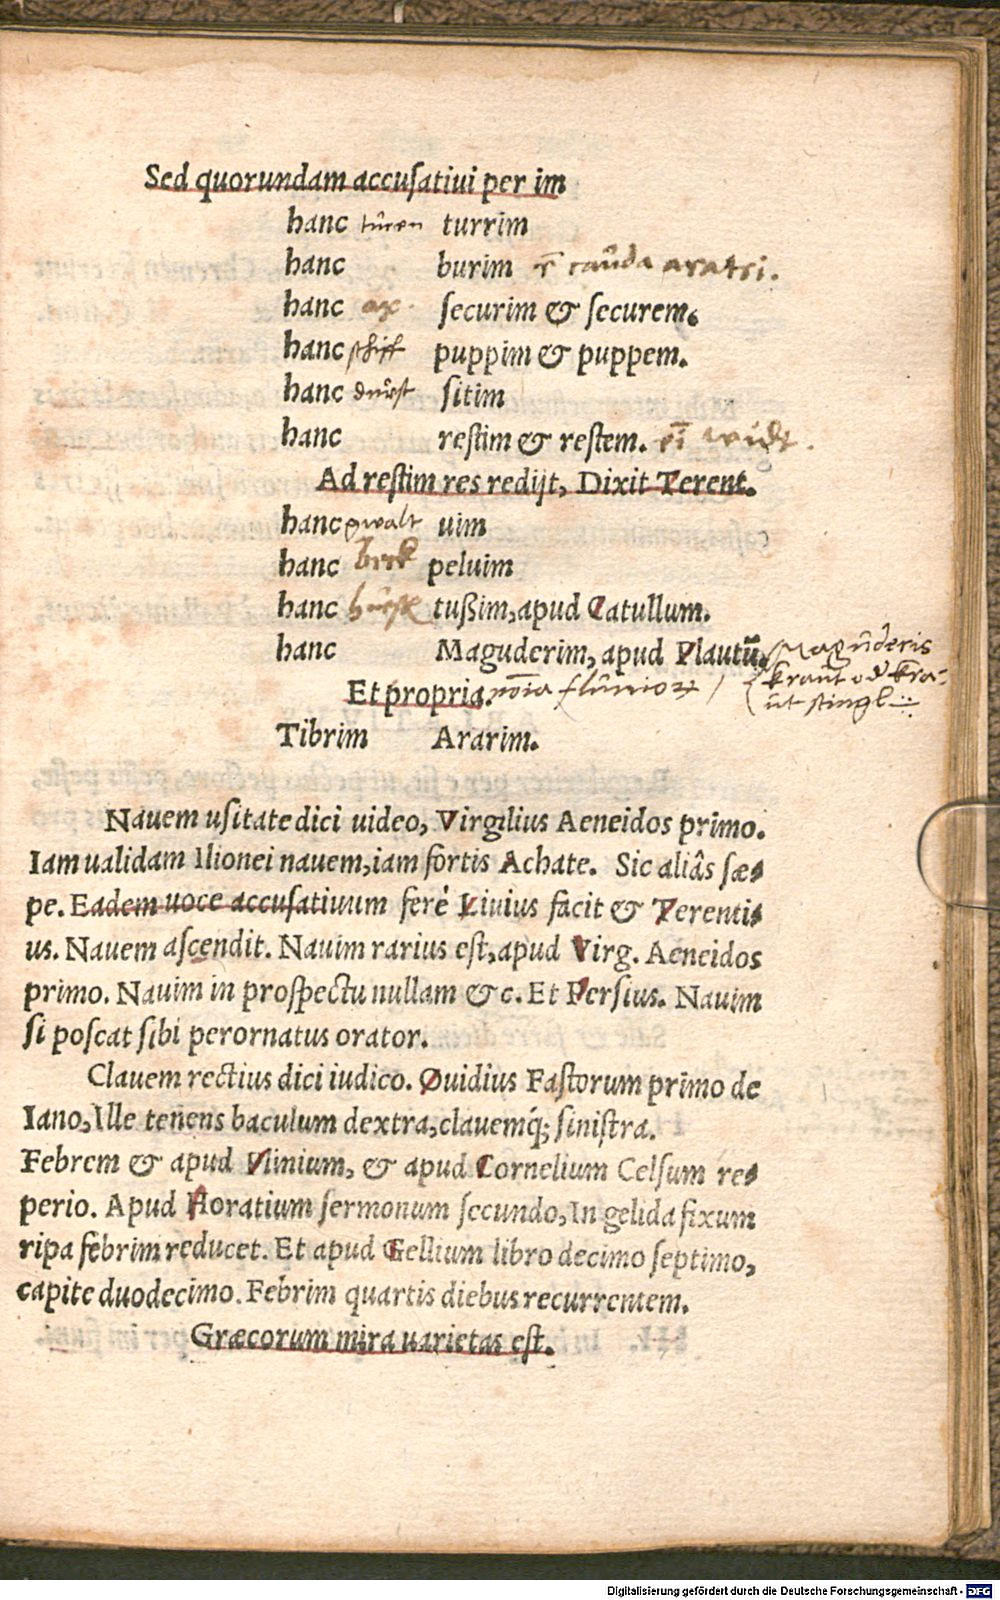 Sed quorundam accusatiui per im
hanc turen turrim
hanc burim cauda aratri.
hanc ax securim & securem.
hanc schiff puppim & puppem.
hanc durst sitim
hanc restim & restem. ei widt.
Ad restim res redijt, Dixit Terent.
hanc gwalt uim
hanc beck peluim
hanc tußim, apud Catullum.
hanc Maguderim, apud Plautũ. Maguderis
kraut od kra-
ut stingl
Et propria. fluuior
Tibrim Ararim.
Nauem usitate dici uideo, Virgilius Aeneidos primo.
Iam ualidam Ilionei nauem, iam fortis Achate. Sic aliâs sæ-
pe. Eadem uoce accusatiuum ferè Liuius facit & Terenti-
us. Nauem ascendit. Nauim rarius est, apud Virg. Aeneidos
primo. Nauim in prospectu nullam &c. Et Persius. Nauim
si poscat sibi perornatus orator.
Clauem rectius dici iudico. Ouidius Fastorum primo de
Iano, Ille tenens baculum dextra, clauemq́; sinistra.
Febrem & apud Plinium, & apud Cornelium Celsum re-
perio. Apud Horatium sermonum secundo, In gelida fixum
ripa febrim reducet. Et apud Gellium libro decimo septimo,
capite duodecimo. Febrim quartis diebus recurrentem.
Græcorum mira uarietas est.
Digitalisierung gefördert durch die Deutsche Forschungsgemeinschaft - DFG